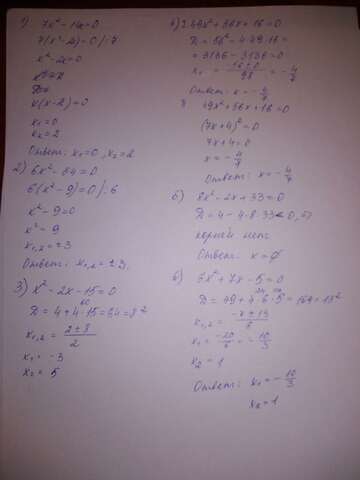 1) 7x² - 14x = 0
7(x² - 2x) = 0 /:7
x² - 2x = 0
x(x-2) = 0
x₁ = 0
x₂ = 2
Ответ: x₁ = 0, x₂ = 2
2) 6x² - 54 = 0
6(x² - 9) = 0 /:6
x² - 9 = 0
x² = 9
x₁,₂ = ±3
Ответ: x₁,₂ = ±3.
3) x² - 2x - 15 = 0
D = 4 + 4·15 = 64 = 8²
x₁,₂ = (2±8)/2
x₁ = -3
x₂ = 5
49x² + 56x + 16 = 0
D = 56² - 4·49·16 =
= 3136 - 3136 = 0
x₁ = (-56±0)/98 = -4/7
Ответ: x = -4/7
49x² + 56x + 16 = 0
(7x+4)² = 0
7x + 4 = 0
x = -4/7
Ответ: x = -4/7
5) 8x² - 2x + 33 = 0
D = 4 - 4·8·33 < 0, =>
корней нет
Ответ: x = ∅
6) 3x² + 7x - 5 = 0
x₁ = -20/6 = -10/3
x₂ = 1
Ответ: x₁ = -10/3
x₂ = 1